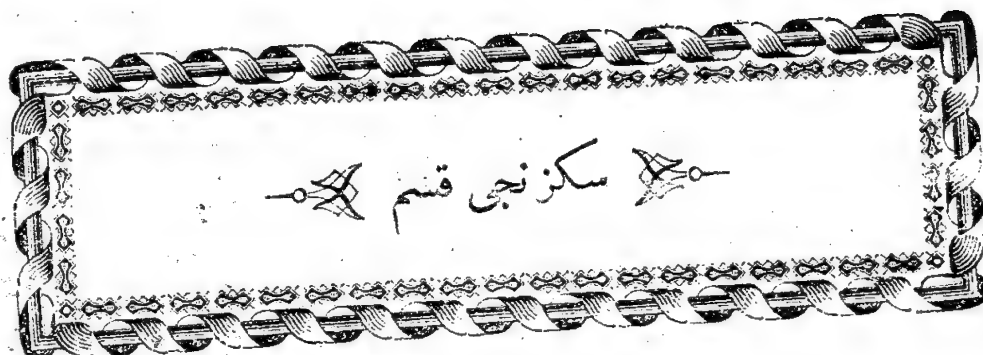 سكزنجی قسم